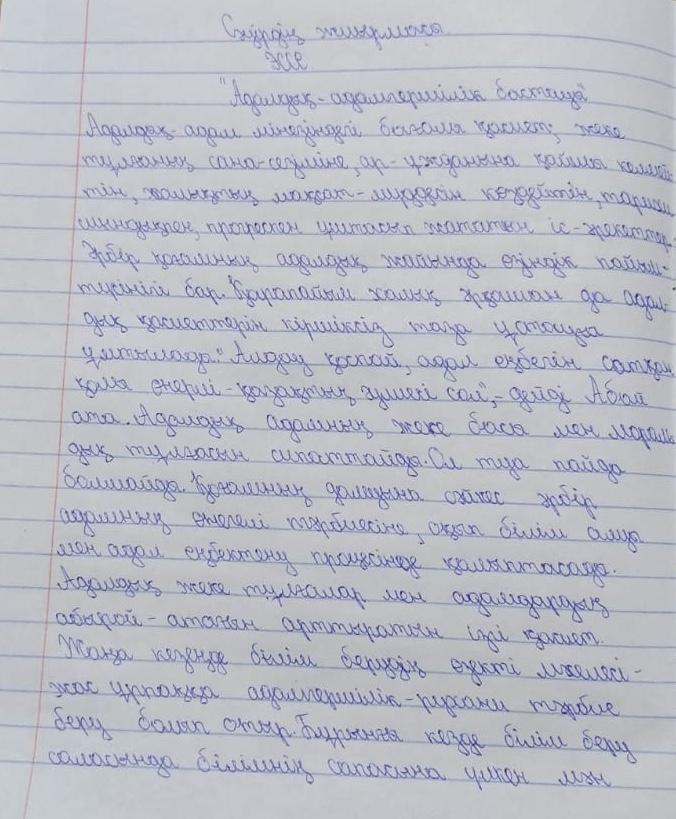 Сәуірдің жиырмасы
ЖИ
"Адалдық-адамгершілік бастауы"
Адалдық-адам мінезіндегі бағалы қасиет, жеке
тұлғаның сана-сезіміне, ар-ұжданына қайшы келмей
тін, халықтың мақсат-мүддесін көздейтін, тарихи
шындықпен, прогреспен ұштасып жататын іс-әрекеттер.
Әрбір қоғамның адалдық жайында өзіндік пайым-
түсінігі бар. Қарапайым халық әрқашан да адал-
дық қасиеттерін кіршіксіз таза ұстауға
ұмтылады. "Алдау қоспай, адал еңбегін сатқан,
қолы өнерлі-қазақтың әулиесі сол",- дейді Абай
ата. Адалдық адамның жеке басы мен мораль
дық тұлғасын сипаттайды. Ол туа пайда
болмайды. Қоғамның дамуына сәйкес әрбір
адамның өнегелі тәрбиесіне, оқып білім алуы
мен адал еңбектену процесінде қалыптасады.
Адалдық жеке тұлғалар мен адамдардың
абырой-атағын арттыратын ізгі қасиет.
Жаңа кезеңде білім берудің өзекті мәселесі-
жас ұрпаққа адамгершілік-рухани тәрбие
беру болып отыр. Бұрынғы кезде білім беру
саласында білімнің сапасына үлкен мән